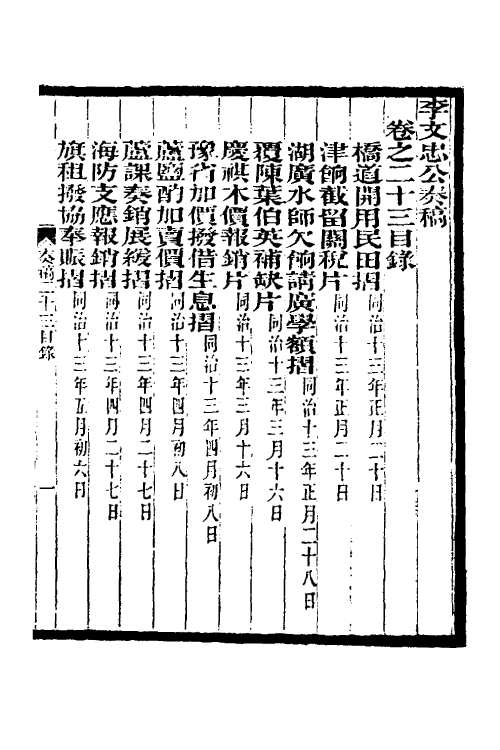 李文忠公奏稿
卷之二十三目錄
橋道開用民田摺同治十三年正月二十日
津餉截留關稅片同治十三年正月二十日
湖廣水師欠餉請廣學額摺同治十三年正月二十八日
覆陳葉伯英補缺片同治十三年三月十六日
慶祺木價報銷片同治十三年三月十六日
豫省加價撥借生息摺同治十三年四月初八日
蘆鹽酌加賣價摺同治十三年四月初八日
蘆課奏銷展緩摺同治十三年四月二十七日
海防支應報銷摺同治十三年四月二十七日
旗租撥協奉賑摺同治十三年五月初六日
奏稿二十三目錄
一